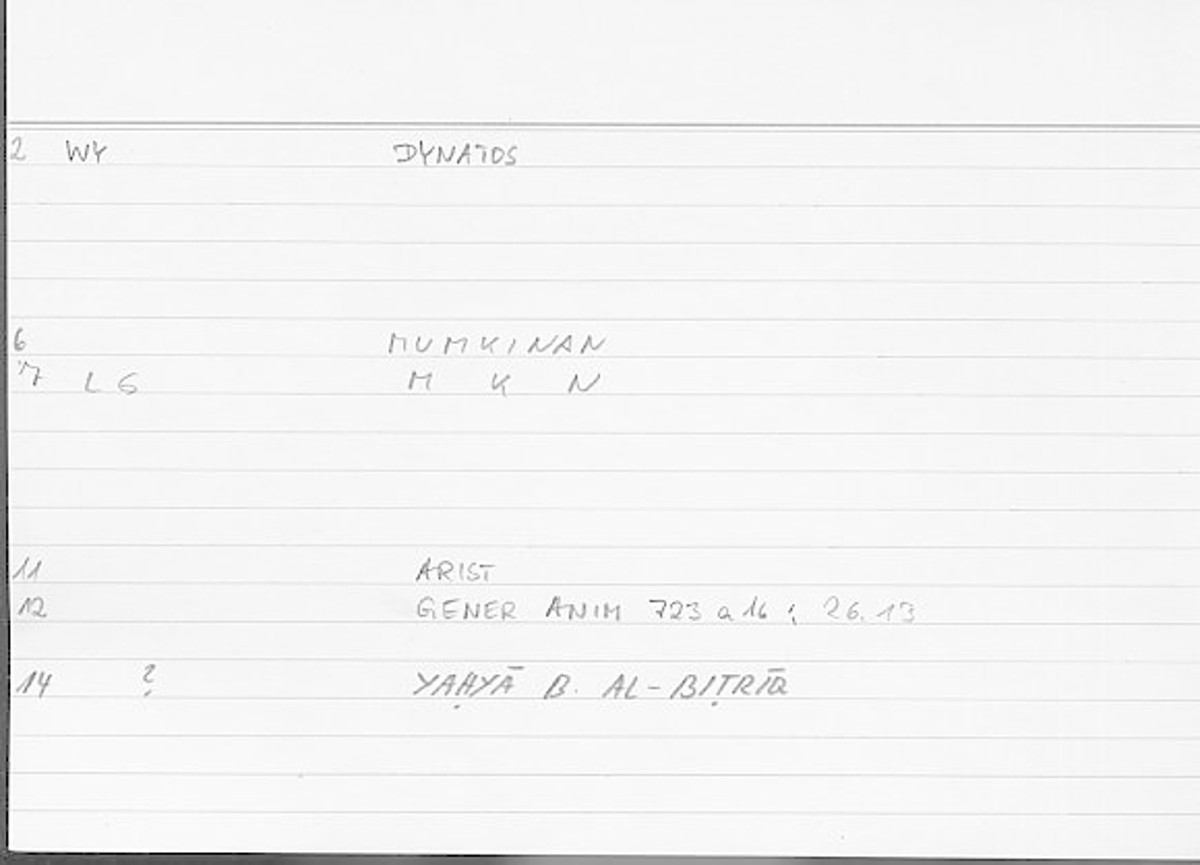 2 WY DYNATOS
6 MUMKINAN
7 LG M K N
11 ARIST
12 GENER ANIM 723 a 16 ; 26.13
14 ? YAḤYĀ B. AL-BIṬRĪQ